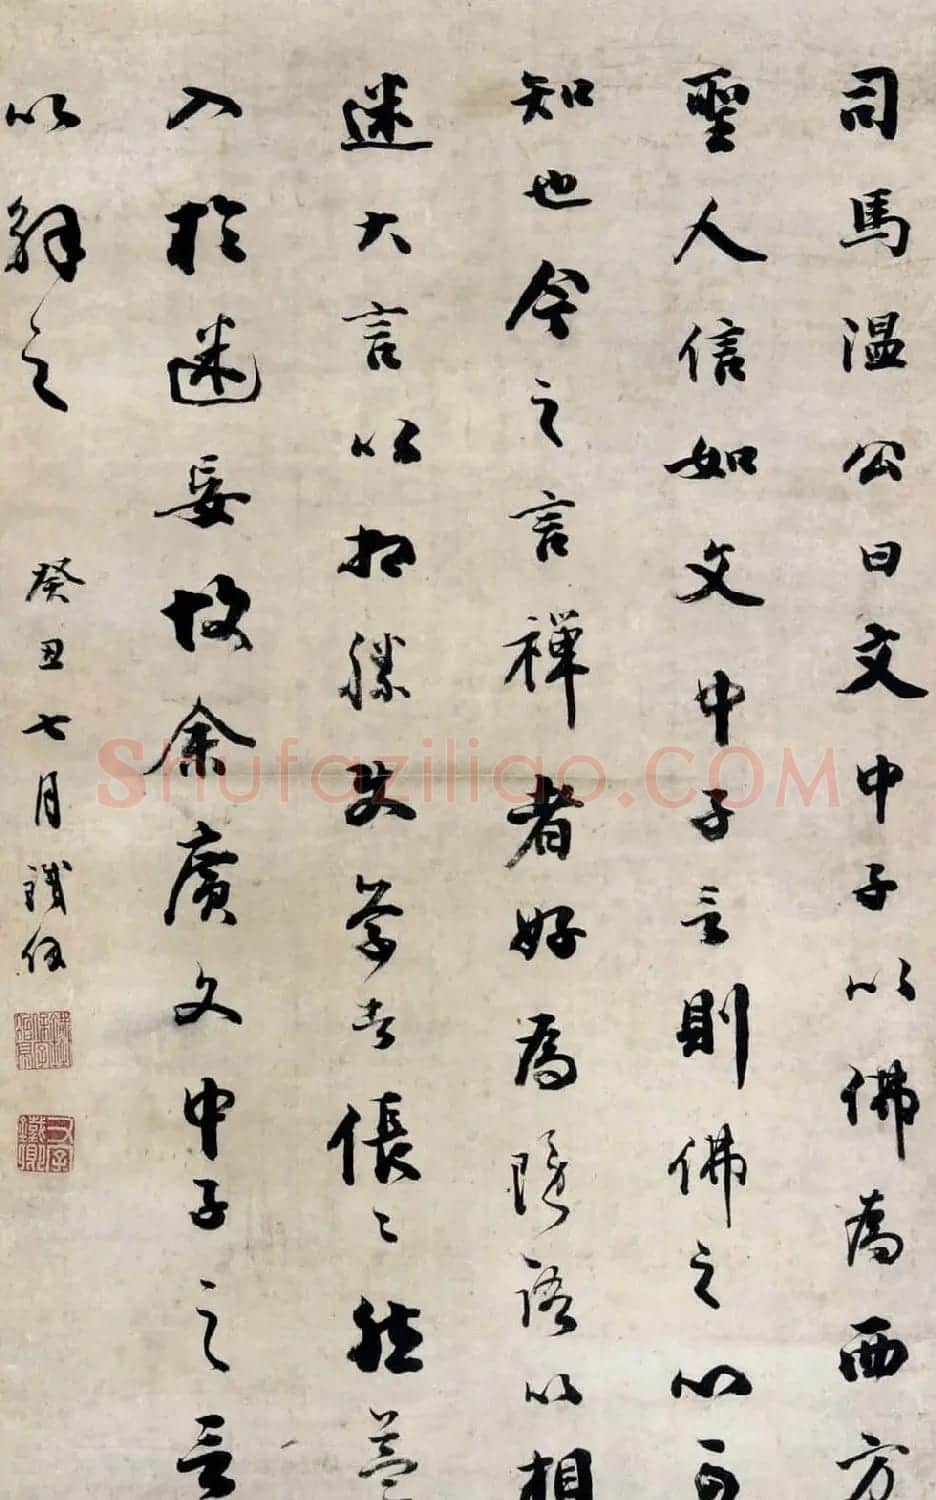 司馬温公曰文中子以佛為西方
聖人信如文中子言則佛之心可
知也今之言禪者好為隱語以相
迷大言以相勝使學者倀〻然益
入於迷妄故余廣文中子之言
以解之
癸丑七月鐵保
Shufaziliao.COM